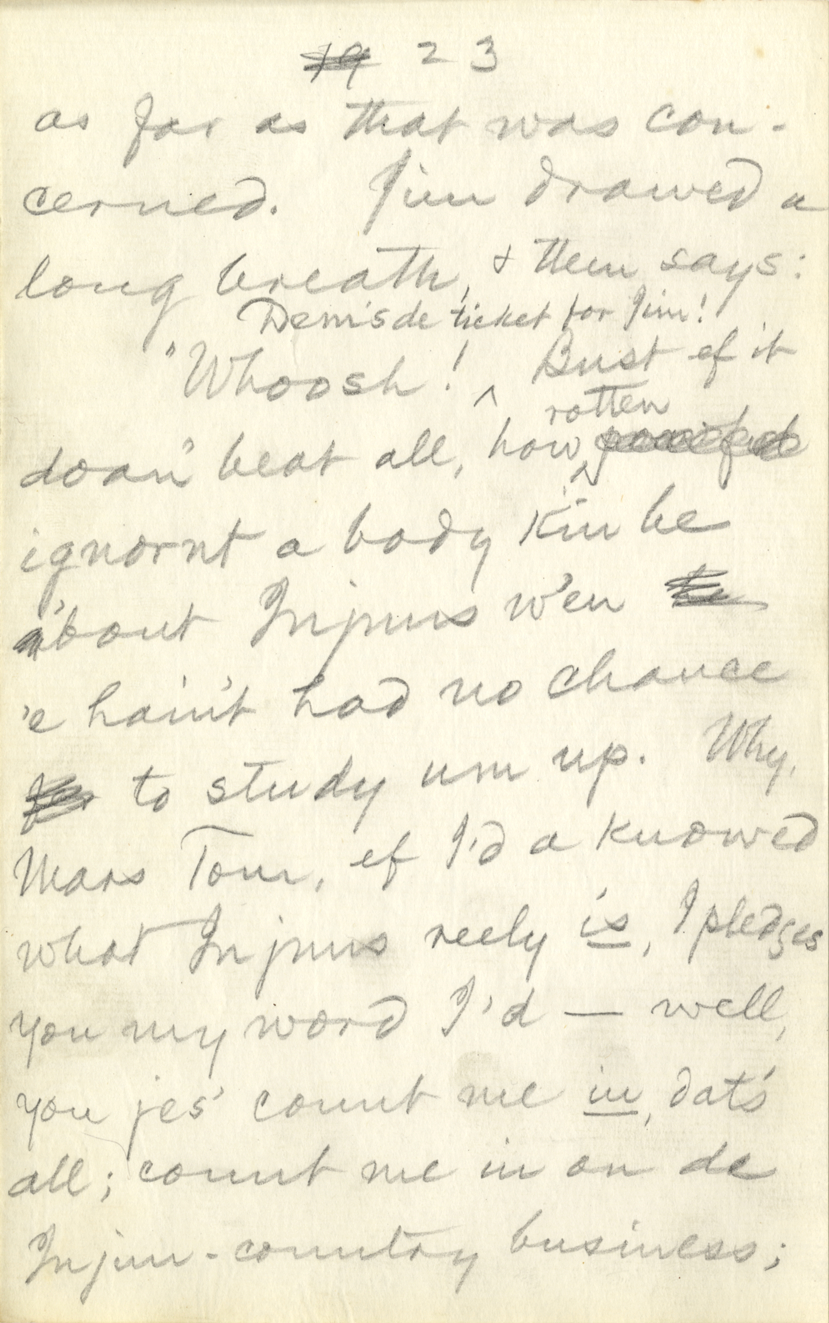 19 23
as far as that was con-
cerned. Jim drawed a
long breath, & then says:
Dem's de ticket for Jim!
"Whoosh! ^ Bust ef it
rotten
doan' beat all, how ^
ignornt a body kin be
'bout Injuns w'en
'e hain't had no chance
to study um up. Why,
Mars Tom, ef I'd a knowed
what Injuns reely is, I pledges
you my word I'd — well,
you jes' count me in, dat's
all; count me in on de
Injun-country business;